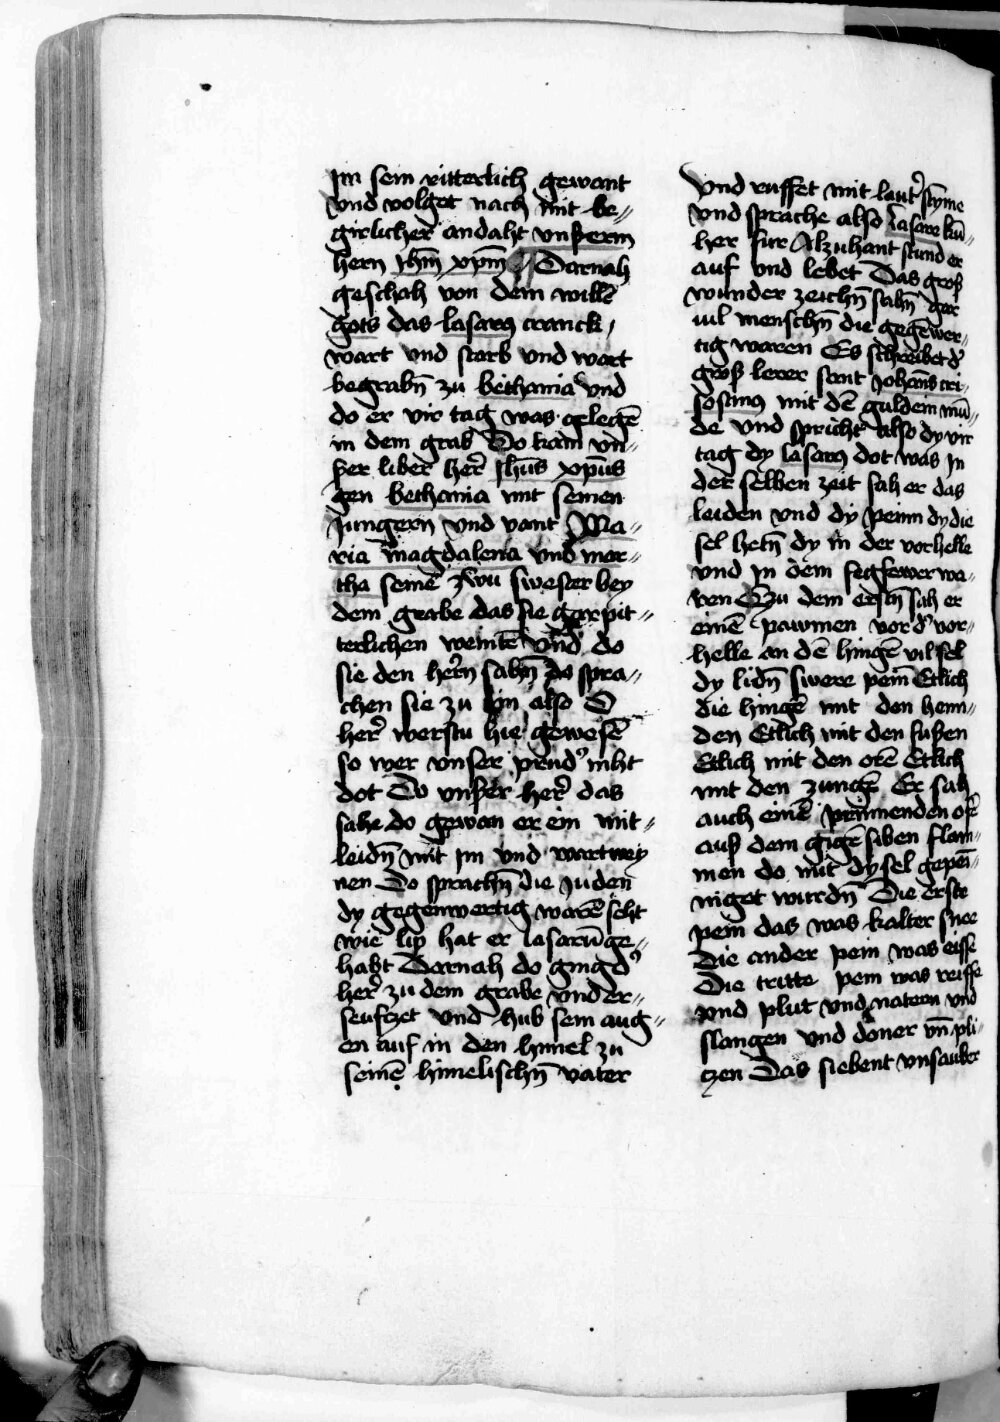 Im sein ritterlich gewant
vnd volget nach mit be„
girlicher andaht vnßerm
hern Jhm̄ xpm̄ Darnah
geschah von dem willē
gots das lasarꝯ cranck
wart vnd starb vnd wart
begrabn̄ zu bethania vnd
do er vir tag was gelegē
in dem grab Do kam vn„
ßer liber her̄ Jhūs xpūs
gen bethania mit seinen
Jungern vnd vant Ma„
ria magdalena vnd mar„
tha seinē zwu swester bey
dem grabe das sie gar pit„
terlichen weintē vnd do
sie den hern̄ sahn̄ do spra„
chen sie zu Im also O
her̄ werstu hie gewesē
so wer vnser prud' niht
dot Do vnßer her̄ das
sahe do gewan er ein mit„
leidn̄ mit Im vnd wart wey
nen Do sprachn̄ die Juden
dy gegenwertig warē seht
wie lip hat er lasarū ge„
habt Darnah do ging d'
her̄ zu dem grabe vnd er„
seufczet vnd hub sein aug„
en auf in den himel zu
seinē himelischn̄ vater
Vnd ruffet mit laut' styme
vnd sprache also lasare kū„
her fur Alzuhant stund er
auf vnd lebet Das groß
wunder zeichn̄ sahn̄ gar
uil menschn̄ die gegēwer„
tig waren Es schreibet d'
groß lerer sant Johāns cri„
sostimꝯ mit dē guldein mū„
de vnd spricht also dy vir
tag dy lasarꝯ dot was In
der selben zeit sah er das
leiden vnd dy peinn dy die
sel hetn̄ dy in der vorhelle
vnd In dem fegfewer wa„
ren Czu dem erstn̄ sah er
einē pawmen vor d' vor„
helle an dē hingē vil sel
dy lidn̄ swere pein̄ Etlich
die hingē mit den henn„
den Etlich mit den fußen
Etlich mit den orē Etlich
mit den zungē Er sah
auch einē prinnenden ofē
auß dem gigē siben flam„
men do mit dy sel gepei„
niget wurdn̄ Die erste
pein das was kalter snee
Die ander pein was eisse
Die tritte pein was reiffe
vnd plut vnd natern vnd
slangen vnd doner vn̄ pli„
czen Das siebent vnsauber